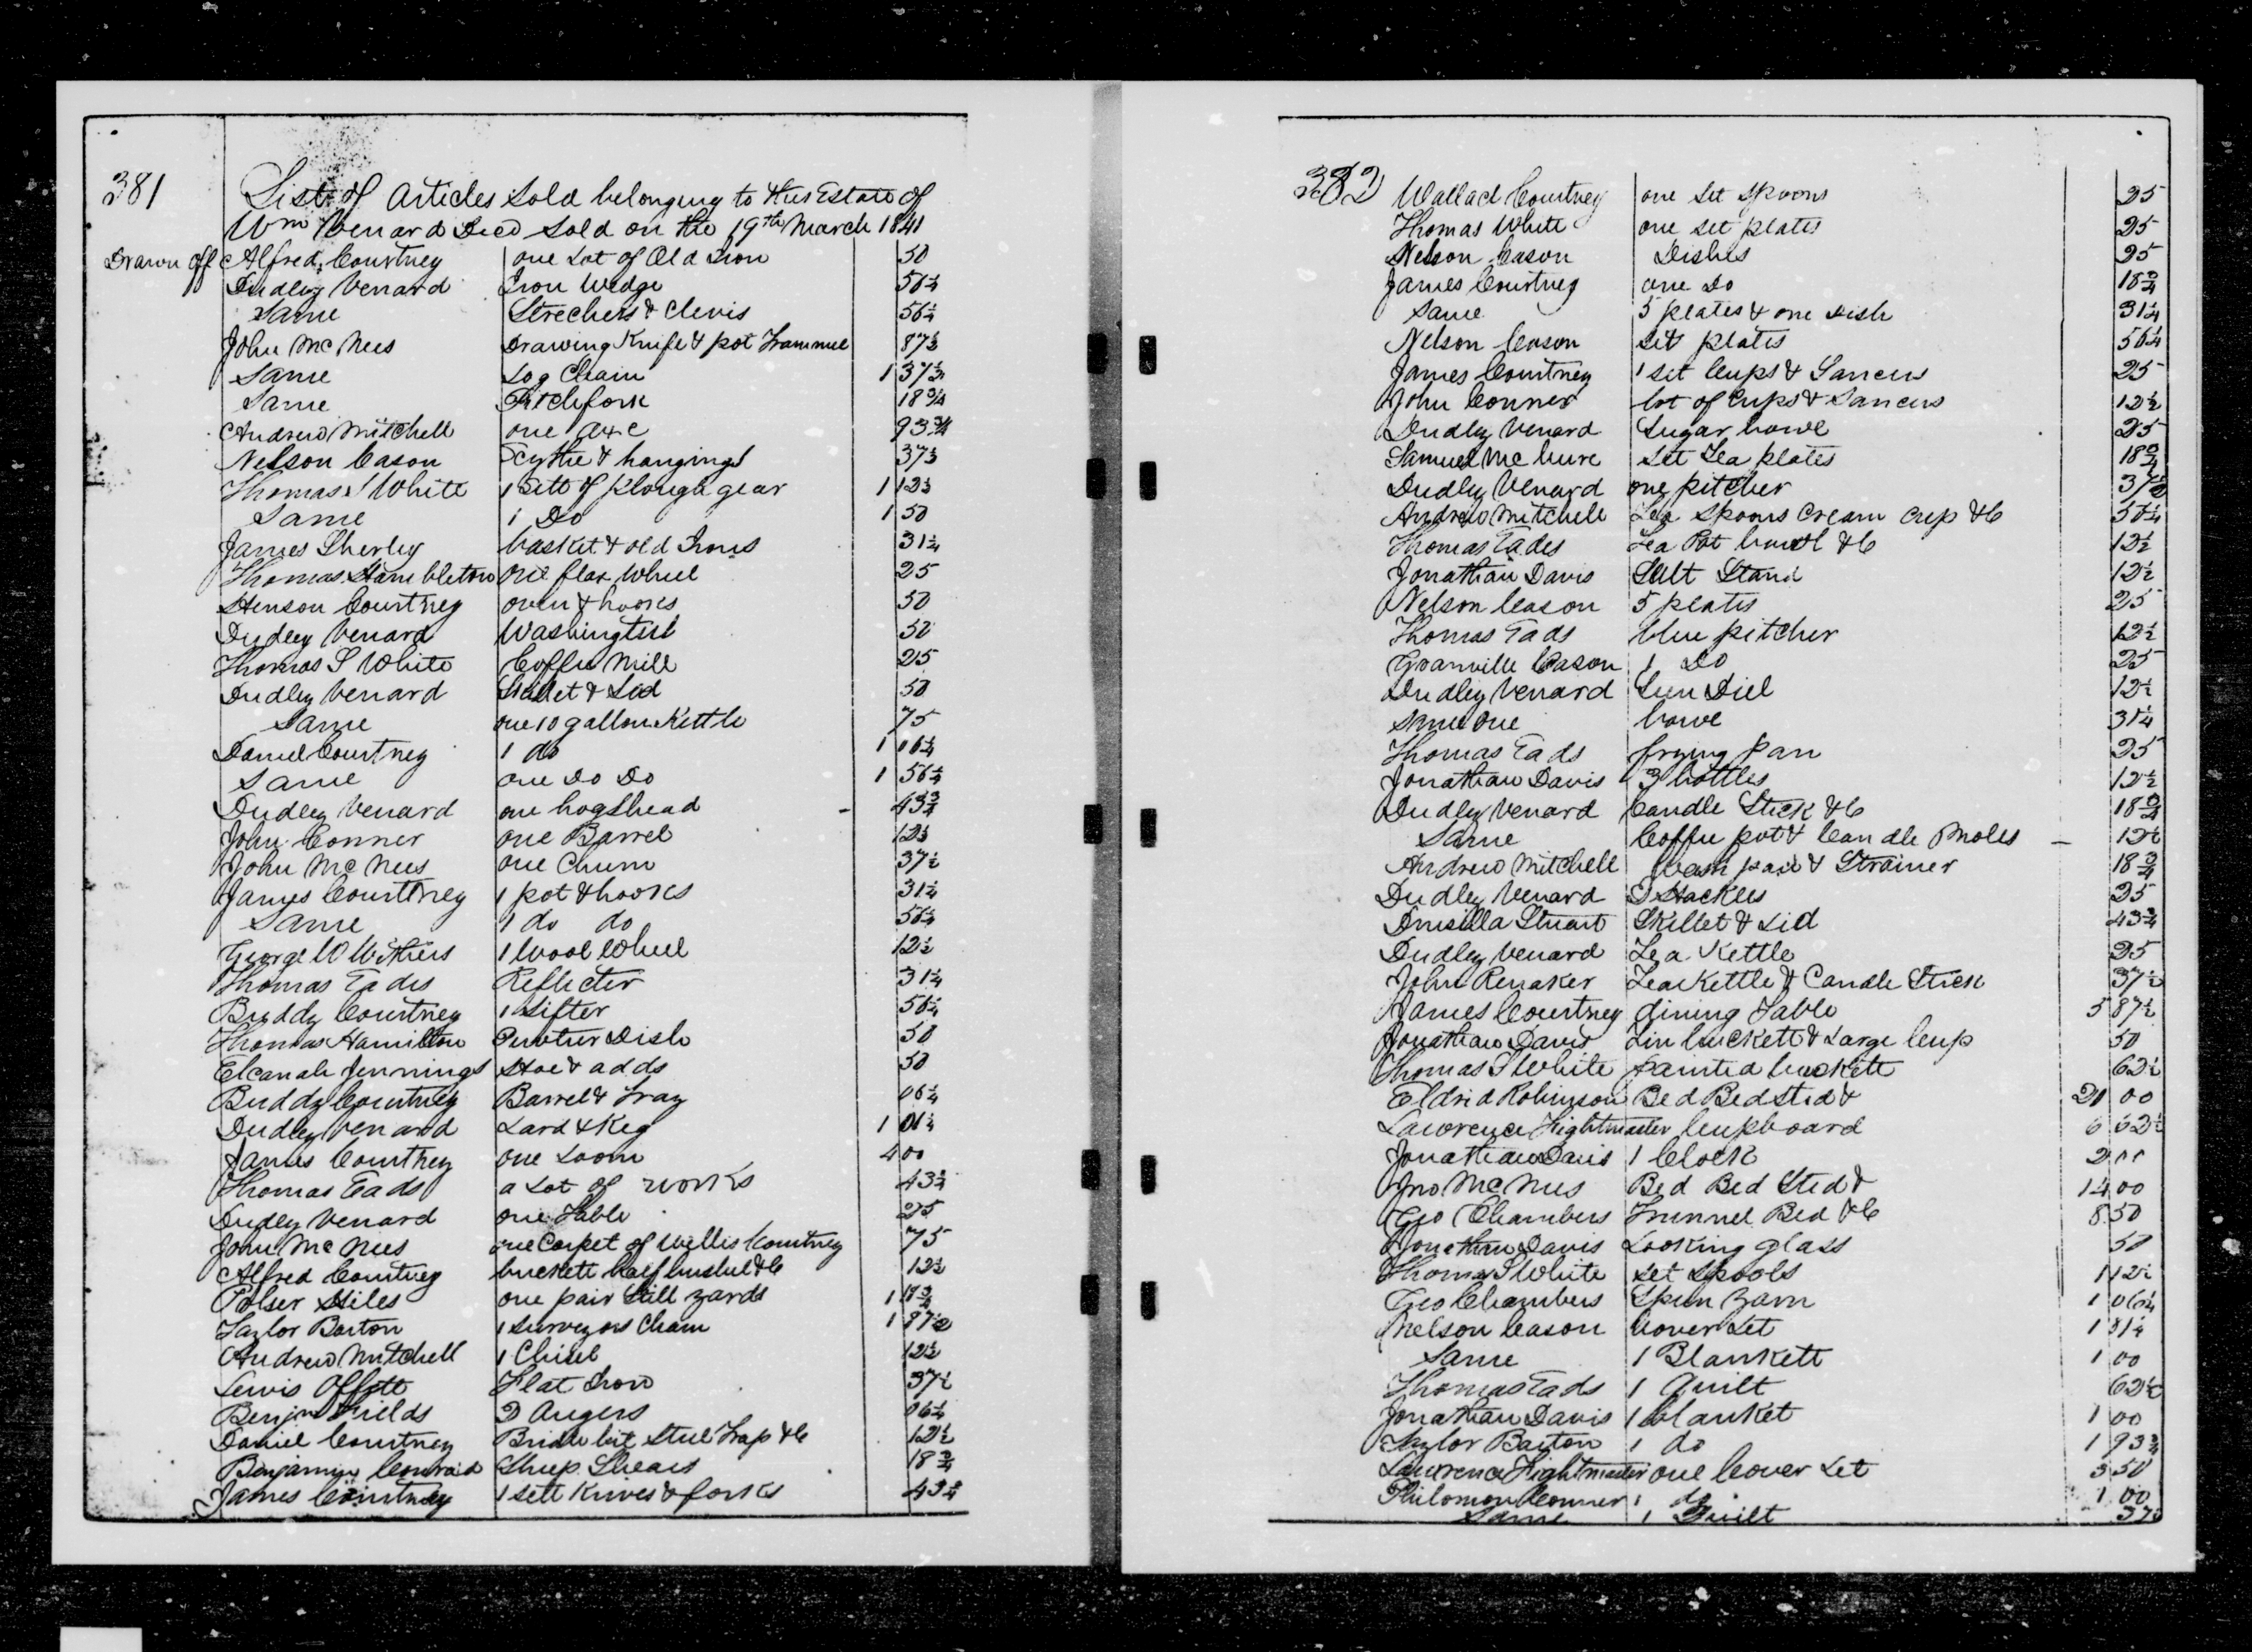 381
List of Articles Sold belonging to the Estate of
Wm Venard Decd Sold on the 19th March 1841
Drawn off Alfred Courtney one Lot of Old Iron 50
Dudley Venard Iron Wedge 56¼
Same Strechers & Clevis 56¼
John McNees Drawing Knife & pot Trammel 87½
Same Log Chain 1 37½
Same Pitchfork 18¾
Andrew Mitchell one Axe 93¾
Nelson Cason Scythe & hangings 37½
Thomas S White 1 Sett of Plough gear 1 12½
Same 1 Do 1 50
James Sherley basket & old Irons 31¼
Thomas Hambleton one flax Wheel 25
Henson Courtney oven & hooks 50
Dudley Venard Washingtub 50
Thomas S White Coffee Mill 25
Dudley Venard Skillet & Lid 50
Same one 10 gallon Kettle 75
Daniel Courtney 1 do 1 06¼
Same one Do Do 1 56¼
Dudley Venard one hogshead 43¾
John Conner one Barrel 12½
John McNees one Churn 37½
James Courtney 1 pot & hooks 31¼
Same 1 do do 56¼
George W Withers 1 Wool Wheel 12½
Thomas Eades Reflecter 31¼
Buddy Courtney 1 Sifter 56¼
Thomas Hamilton Pewter Dish 50
Elcanah Jennings Hoe & adds 50
Buddy Courtney Barrel & Tray 06¼
Dudley Venard Lard & Keg 1 01¼
James Courtney one Loom 4 00
Thomas Eads a Lot of works 43¾
Dudley Venard one Table 25
John McNees one Carpet of Willis Courtney 75
Alfred Courtney buckett half bushel &c 12½
Polser Hiles one pair Still yards 1 18¾
Taylor Barton 1 Surveyors Chain 1 87½
Andrew Mitchell 1 Chisel 12½
Lewis Offett Flat Iron 37½
Benjn Fields 2 Augers 06¼
Daniel Courtney Bridle bit Steel Trap &c 12½
Benjamin Conrad Sheep Shears 18¾
James Courtney 1 sett Knives & forks 43¾
382 Wallach Courtney one Set Spoons 25
Thomas White one set plates 25
Nelson Cason Dishes 25
James Courtney one Do 18¾
Same 5 plates & one dish 31¼
Nelson Cason Set plates 56¼
James Courtney 1 set Cups & Saucers 25
John Conner lot of Cups & Saucers 12½
Dudley Venard Sugar bowl 25
Samuel McClure Set Tea plates 18¾
Dudley Venard one pitcher 37½
Andrew Mitchell Tea Spoons Cream Cup &c 56¼
Thomas Eades Tea Pot bowl &c 12½
Jonathan Davis Salt Stand 12½
Nelson Cason 5 plates 25
Thomas Eads blue pitcher 12½
Granville Cason 1 Do 25
Dudley Venard Sun Diel 12½
Same one bowl 31¼
Thomas Eads frying pan 25
Jonathan Davis 3 bottles 12½
Dudley Venard Candle Stick &c 18¾
Same Coffee pot & Candle Moles 12½
Andrew Mitchell Wash pan & Strainer 18¾
Dudley Venard 2 Hackles 25
Drusilla Stuart Skillet & Lid 43¾
Dudley Venard Tea Kettle 25
John Renaker Tea Kettle & Candle Stick 37½
James Courtney dining Table 5 87½
Jonathan Davis Tin buckett & Large Cup 50
Thomas S White painted buckett 62½
Eldrid Robinson Bed Bedsted & 20 00
Lawrence Hightmaster Cupboard 6 62½
Jonathan Davis 1 Clock 2 00
Jno McNees Bed Bed Sted & 14 00
Geo Chambers Trunnel Bed &c 8 50
Jonathan Davis Looking glass 50
Thomas S White set Spools 1 12½
Geo Chambers Spun Yarn 1 06¼
Nelson Cason Cover Let 1 31¼
Same 1 Blankett 1 00
Thomas Eads 1 Quilt 62½
Jonathan Davis 1 blanket 1 00
Taylor Barton 1 do 1 93¾
Lawrence Hightmaster one Cover Let 3 50
Philomon Conner 1 do 1 00
Same 1 Quilt 37½